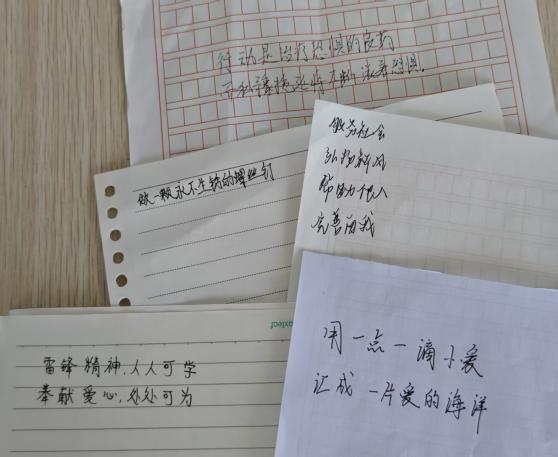 行动是治疗恐惧的良药
而犹豫拖延将不断滋养恐惧.
服务社会
弘扬新风
帮助他人
完善自我
做一颗永不生锈的螺丝钉
雷锋精神,人人可学
奉献爱心,处处可为
用一点一滴小爱
汇成一片爱的海洋